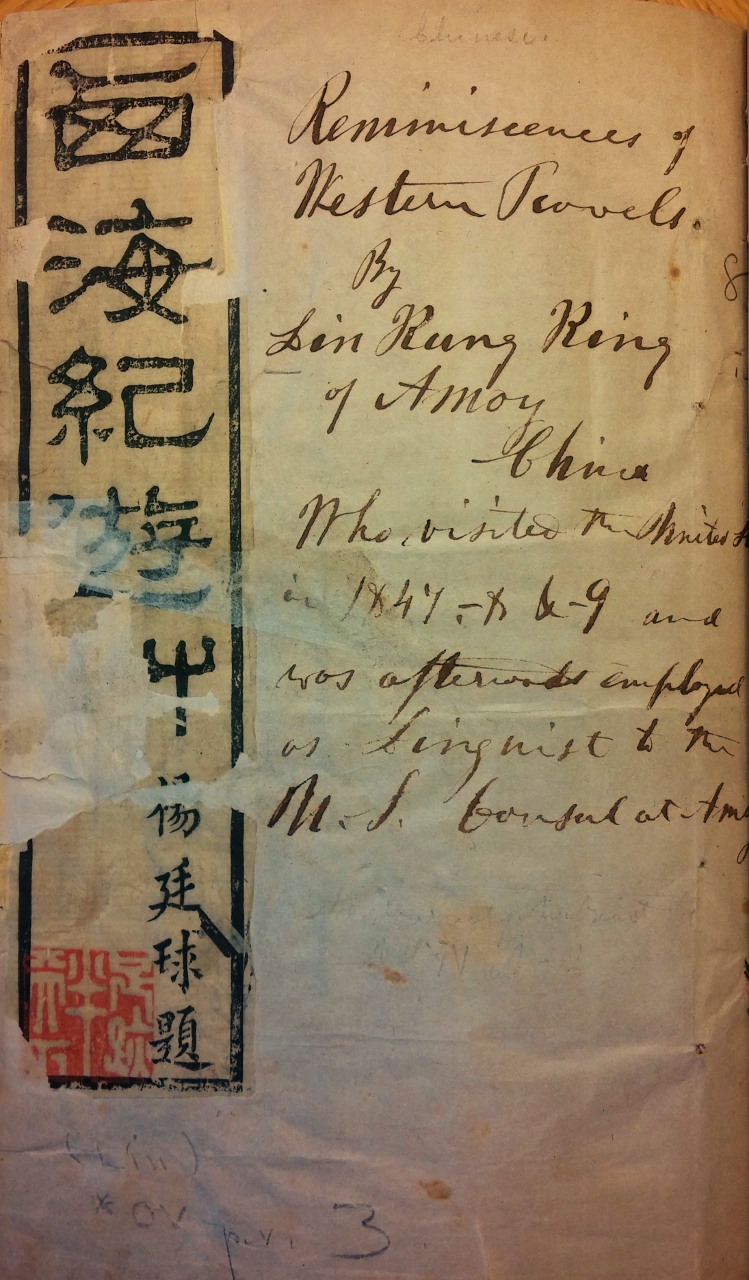 Chinese.
西海紀遊艸
楊廷球題
Reminiscences of
Western Travels.
By
Lin Kung King
of Amoy
China
Who visited the United
in 1847,-8 & -9 and
was afterwards employed
as Linguist to the
U. S. Consul at Amoy
8
(Lin)
*OV p.v. 3